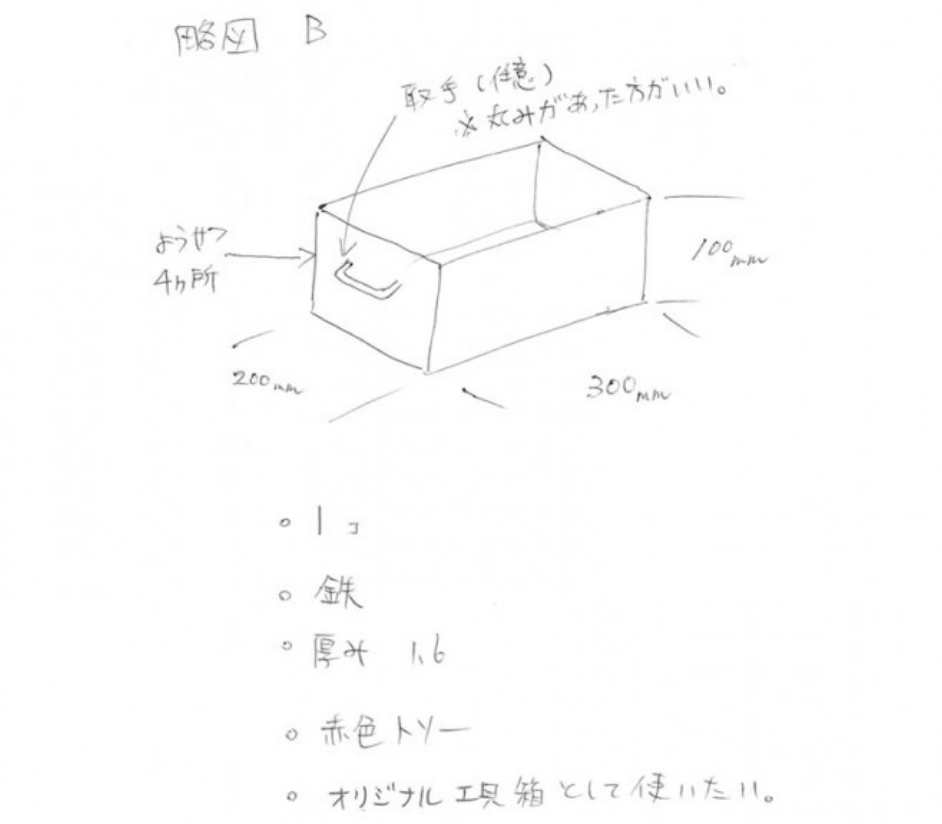 略図 B
取手(任意)
※丸みがあった方がいい。
ようせつ
4ヵ所
100mm
200mm
300mm
。1コ
。鉄
。厚み 1.6
。赤色トソー
。オリジナル工具箱として使いたい。